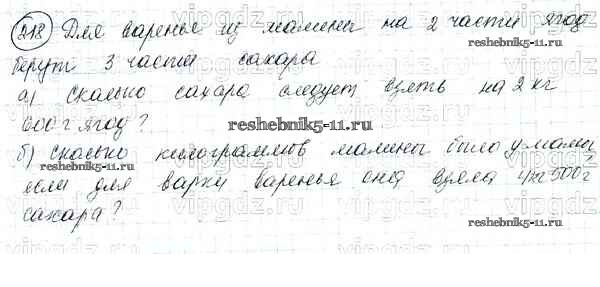 218 Для варенье из малины на 2 части ягод
берут 3 части сахара
а) сколько сахара следует взять на 2 кг
600 г ягод?
б) сколько килограммов малины было у мамы,
если для варки варенья она взяла 4 кг 500 г
сахара?
reshebnik5-11.ru
reshebnik5-11.ru
reshebnik5-11.ru
reshebnik5-11.ru
vipgdz